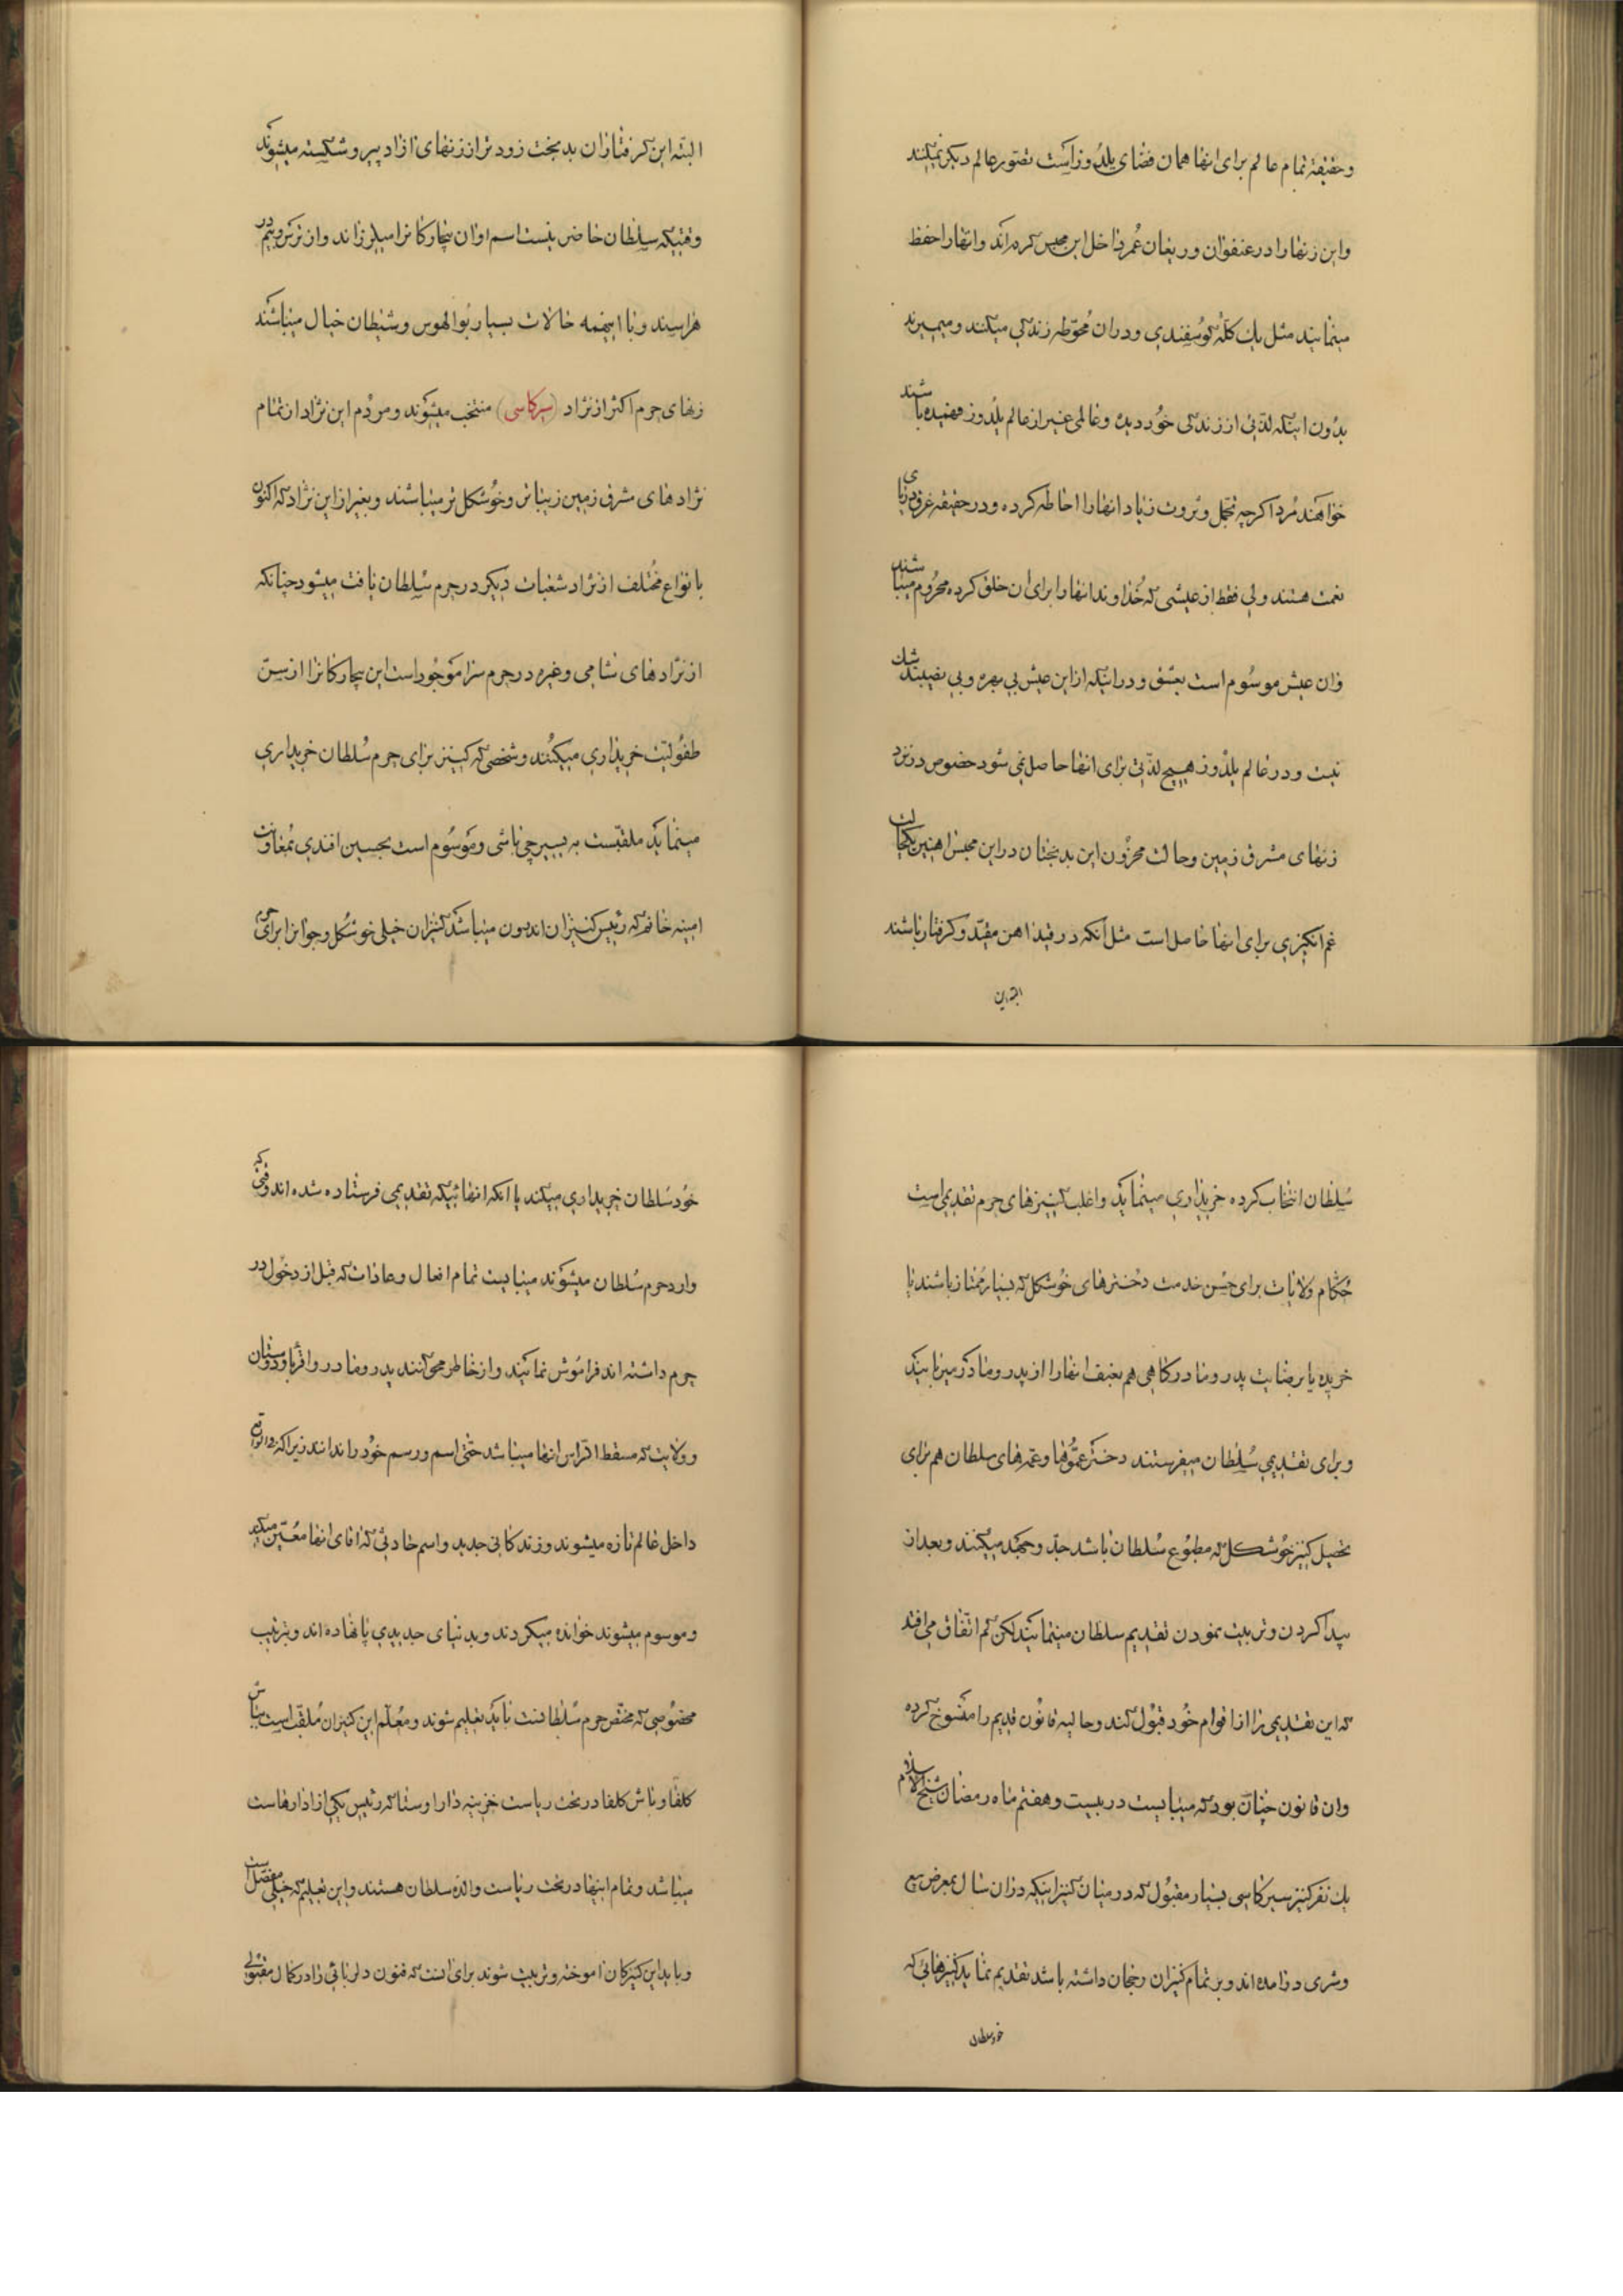 وحقیقة تمام عالم برای انها همان فضای یلدوز است تصور عالم دیکر نمیکنند
واین زنها را در عنفوان وریعان عُمر داخل این محبس کرده اند وانها را حفظ
مینمایند مثل یك کلّه کوسفندی ودران مُحوّطه زندکی میکنند ومیمیرند
بدُون اینکه لذتی از زندکی خُود دیده وعالمی غیر از عالم یلدوز فهمیده باشند
خواهند مُرد اکرچه تجمل وثروت زیاد انها را احاطه کرده ودر حقیقه غرق دریای
نعمت هستند ولی فقط از عیشی که خُداوند انها را برای ان خلق کرده محرُوم میباشند
وان عیش موسُوم است بعشق ودر اینکه از این عیش بی بهره وبی نصیبند شك
نیست ودر عالم یلدوز هیچ لذّتی برای انها حاصل نمی شود خصوص در نزد
زنهای مشرق زمین وحالت محزُون این بدبختان در این محبس اهنین یکحالت
غم انکیزی برای انها حاصل است مثل انکه در قید اهن مقیّد وکرفتار باشند
البته این
البتّه این کرفتاران بدبخت زودتر از زنهای ازاد پیر وشکسته میشوند که
وقتیکه سلطان حاضر نیست اسم او ان بیچارکانرا میلرزاند واز ترس وبیم در
هراسند وبا اینهمه حالات بسیار بوالهوس وشیطان خیال میباشند
زنهای حرم اکثر از نژاد (سرکاسی) منتخب میشوند ومردُم این نژاد از تمام
نژادهای مشرق زمین زیباتر وخُوشکل تر میباشند وبغیر از این نژاد که اکنون
بانواع مُختلف از نژاد شعبات دیکر در حرم سُلطان یافت میشود چنانکه
از نژادهای شامی وغیره در حرم سرا موجُود است این بیچارکانرا از سنّ
طفُولیّت خریداری میکنُند وشخصی که کنیز برای حرم سُلطان خریداری
مینماید ملقبّست به بسیرچی باشی وموسُوم است بحسین افندی بمُعاونت
امینه خانم که رئیس کنیزان اندرون میباشد کنیزان خیلی خوشکل وجوانرا برای حرم
سُلطان انتخاب کرده خریداری مینماید واغلب کنیزهای حرم تقدیمی است
حُکّام ولایات برای حُسن خدمت دخترهای خُوشکل که بسیار مُمتاز باشند یا
خریده یا برضایت پدر ومادر وکاهی هم بعنف انها را از پدر ومادر میربایند
وبرای تقدیمی سُلطان میفرستند دختر عمُّوها وعمّه های سلطان هم برای
تحصیل کنیز خُوشکل که مطبُوع سُلطان باشد جدّ وجهد میکنند وبعد از
پیدا کردن وتربیت نمودن تقدیم سلطان مینمایند لکن کم اتّفاق می افتد
که این تقدیمی را از اقوام خُود قبُول کند وحالیه قانُون قدیم را منسُوخ کرده
وان قانون چنان بود که میبایست در بیست وهفتم ماه رمضان شیخ الاسلام
یك نفر کنیز سیرکاسی بسیار مقبُول که در میان کنیزانیکه در ان سال بمعرض بیع
وشری در امده اند وبر تمام کنیزان رجحان داشته باشد تقدیم نماید کنیزهائی که
خود سلطان
خُود سُلطان خریداری میکند یا انکه انهائیکه تقدیمی فرستاده شده اند وقتی که
وارد حرم سُلطان میشوند میبایست تمام افعال وعادات که قبل از دخُول در
حرم داشته اند فرامُوش نمایند واز خاطر محو کنند پدر ومادر واقربا ودوستان
وولایت که مسقط الرّاس انها میباشد حتّی اسم ورسم خُود را ندانند زیرا که در واقع
داخل عالم تازه میشوند وزندکانی جدید واسم حادثی که اقای انها معُیّن میکند
وموسوم میشوند خوانده میکردند وبدنیای جدیدی پا نهاده اند وبترتیب
مخصُوصی که مختصّ حرم سُلطانست باید تعلیم شوند ومُعلّم این کنیزان مُلقّب است بباش
کلفا وباش کلفا در تحت ریاست خزینه دار اوستا که رئیس یکی از ادارهاست
میباشد وتمام اینها در تحت ریاست والدهٔ سلطان هستند واین تعلیم که خیلی مفصّل است
وباید این کنیزکان اموخته وتربیت شوند برای انست که فنون دلربائی را در کمال مقبولی